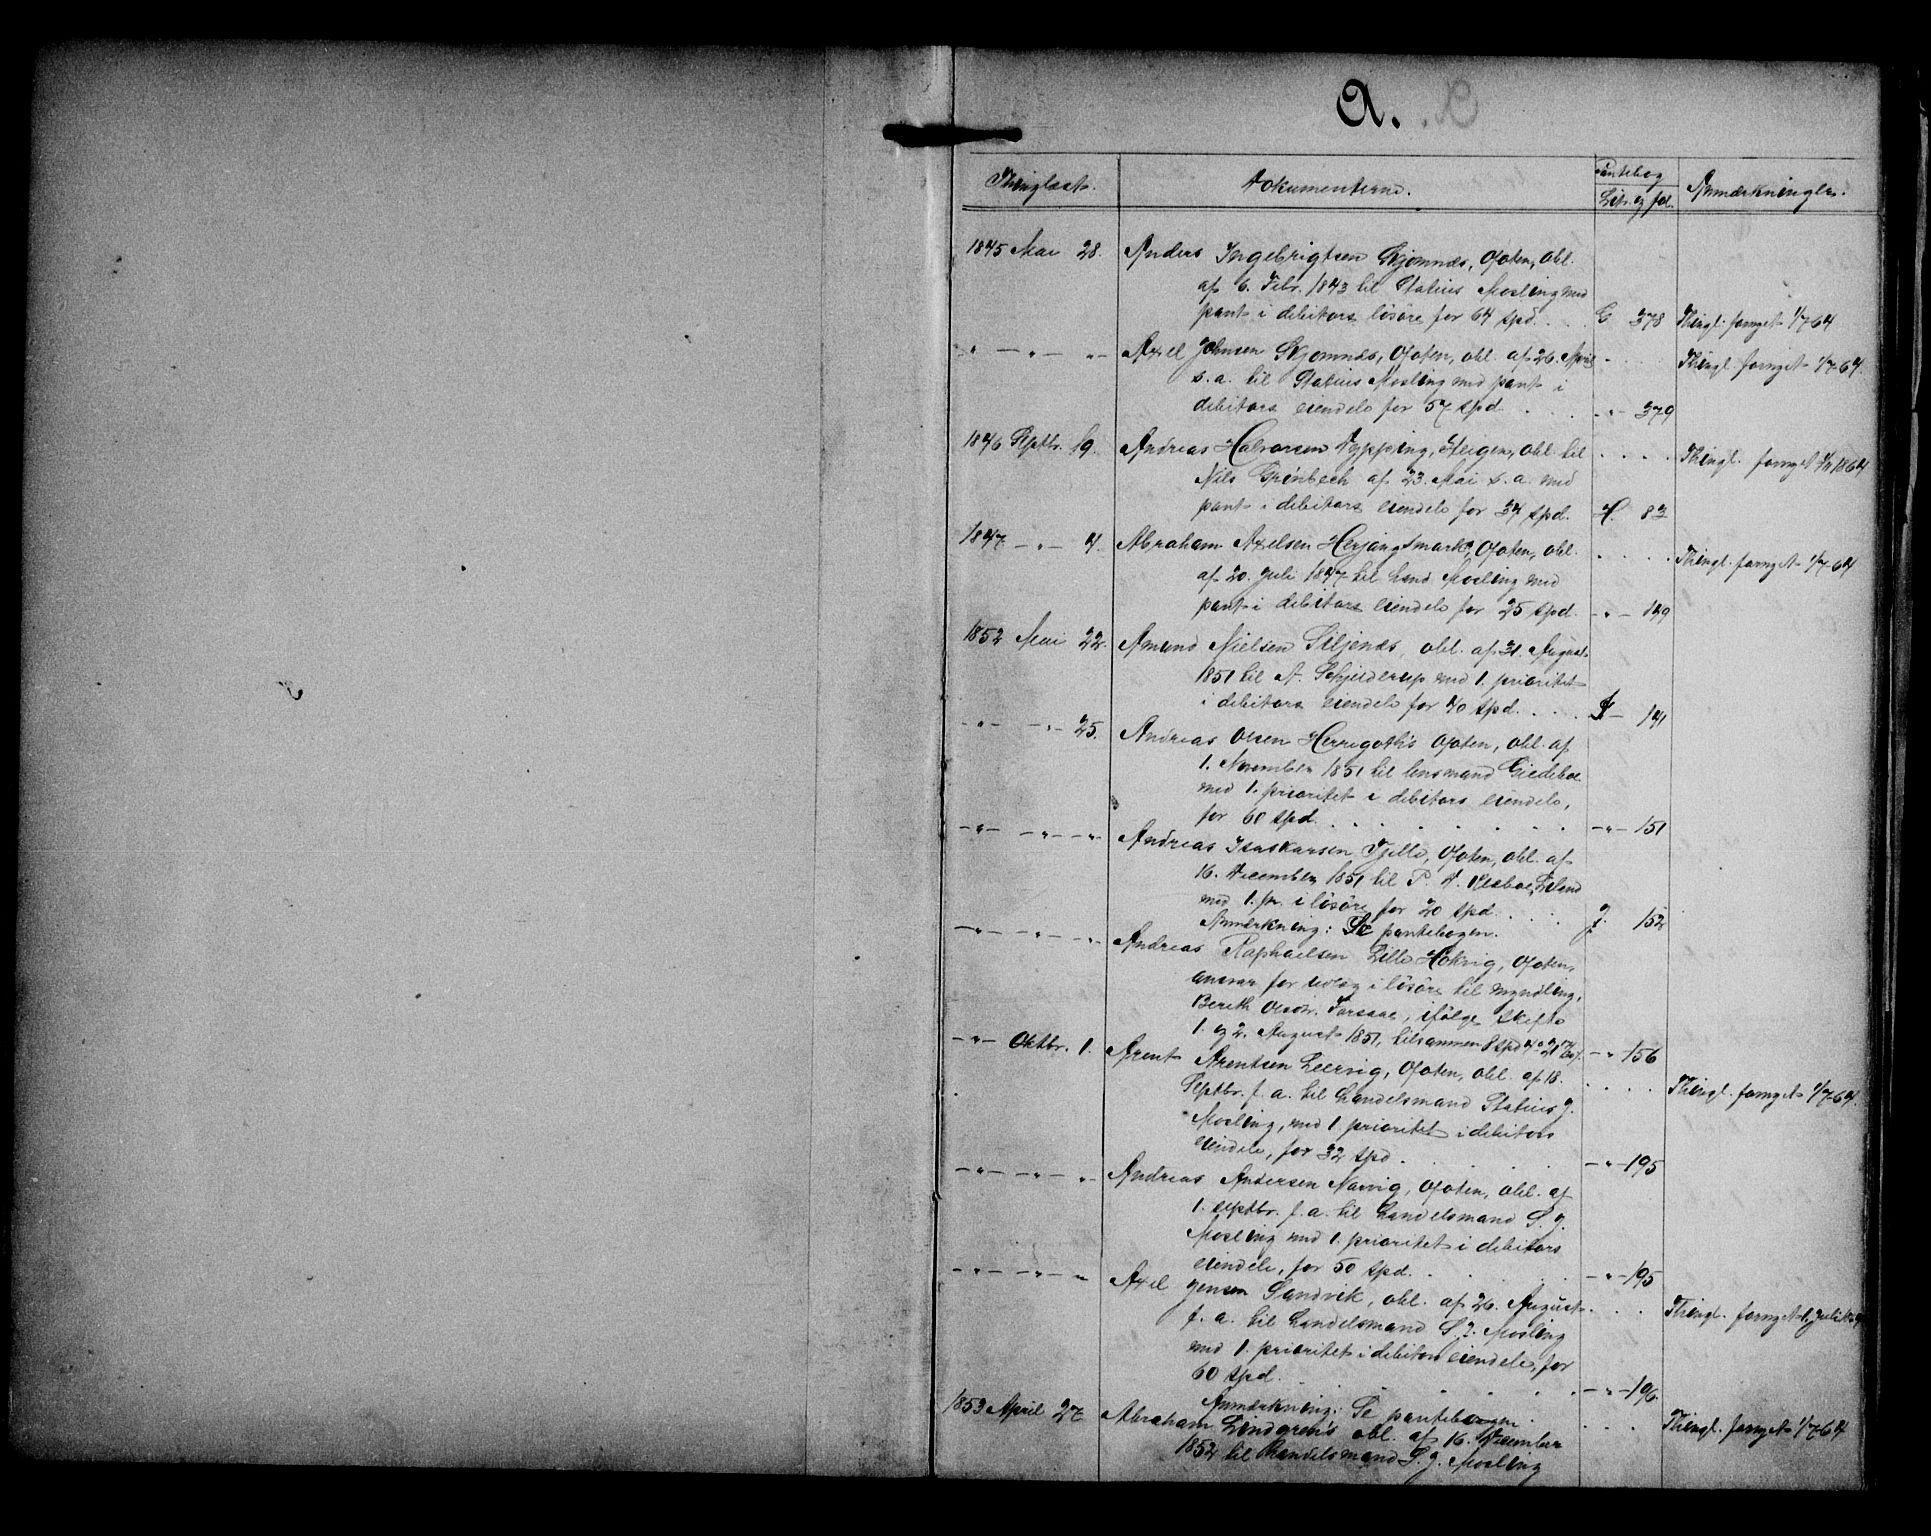 A.
Thinglæst. Dokumenterne. Pantebog Anmærkninger.
Litr. og fol.
1845 Mai 28. Anders Ingebrigtsen Skjomnæs, Ofoten, obl.
af 6. Febr. 1843 til Statius Mosling med
pant i debitors løsøre for 64 spd. . . . G 378 Thingl. fornyet 1/7 64
" — " — " — Axel Johnsen Skjomnæs, Ofoten, obl. af 26. April . . . . Thingl. fornyet 1/7 64.
s. a. til Statius Mosling med pant i
debitors eiendele for 57 spd. . . . . - " - 379
1846 Septbr. 19. Andreas Halvorsen Dypping, Steigen, obl. til . . . . Thingl. fornyet 1864
Nils af 23. Mai s. a. med
pant i debitors eiendele for 34 spd. H. 83
1847 — " — 4. Abraham Axelsen Herjangsmark, Ofoten, obl. . . . . Thingl. fornyet 1/7 64
af 20. Juli 1847 til Mosling med
pant i debitors eiendele for 25 spd. - " - 149
1852 Mai 22. Amund Nielsen Stljenæs, obl. af 31. August
1851 til A. Schjelderup med 1. prioritet
i debitors eiendele for 40 spd. . . . . J — 141
— " — — " — 25. Andreas Olsen Herregoth's Ofoten, obl. af
1. November 1851 til lensmand Giedeboe
med 1. prioritet i debitors eiendele,
for 60 spd. . . . . . . — " — 151
— " — — " — " — Andreas Isaskarsen Tjelle, Ofoten, obl. af
16. December 1851 til P. A.
med 1. pr. i løsøre for 20 spd. . . . J. 152
Anmærkning: Se pantebogen.
— " — — " — " — Andreas Raphaelsen Lille Hokvig, Ofoten,
ansvar for udlæg i løsøre til myndling,
Bereth Olsdr. Forsaae, ifølge skifte
1. og 2. August 1851, tilsammen 8 spd — " — 156
— " — Oktbr. 1. Arent Arentsen Leervig, Ofoten, obl. af 18. . . . . Thingl. fornyet 1/7 64.
Septbr. f. a. til handelsmand Statius J.
Mosling, med 1. prioritet i debitors
eiendele, for 32 spd. . . . . — " — 195
— " — — " — " — Andreas Andersen Narvig, Ofoten, obl. af
1. septbr. f. a. til handelsmand S. J.
Mosling med 1. prioritet i debitors
eiendele, for 50 spd. . . . . — " — 195
— " — — " — " — Axel Jensen Sandvik, obl. af 26. August . . . Thingl. fornyet 1. Juli
f. a. til handelsmand S. J. Mosling
med 1. prioritet i debitors eiendele, for
60 spd. . . . . . . — " — 196
Anmærkning: Se pantebogen.
1853 April 27 Abraham Lindgren's obl. af 16. December . . . Thingl. fornyet 1/7 64
1852 til handelsmand S. J. Mosling